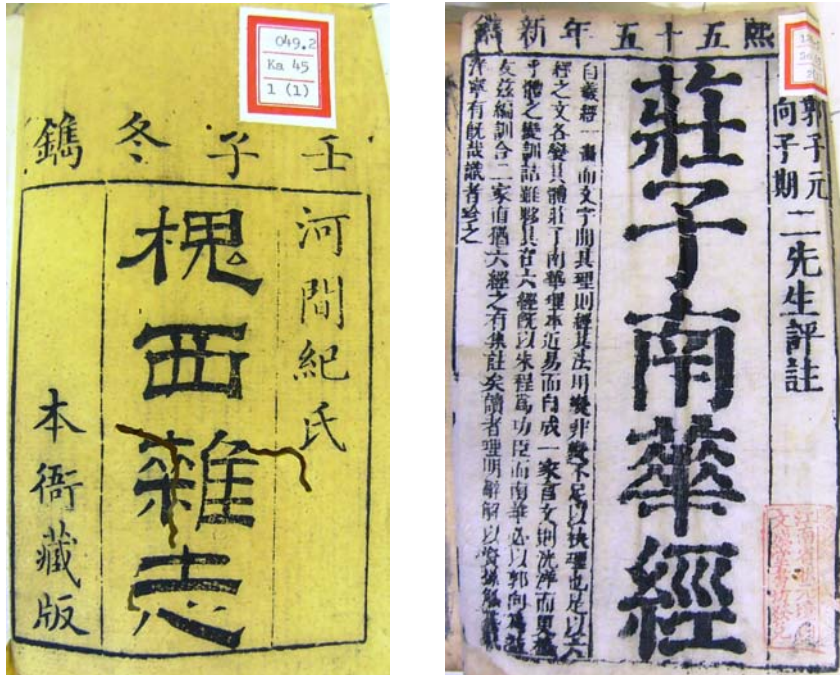 049.2
Ka 45
1 (1)
壬子冬鐫
河間紀氏
槐西雜志
本衙藏版
熙五十五年新鐫
郭子元
向子期
二先生評註
莊子南華經
自羲經一畫而文字開其理則經其法用變非變不足以挾理也足以六
經之文各變其體莊子南華理本近易而自成一家言文則洸洋而更
乎體之變訓詁雖夥其在六經旣以朱程爲功臣而南華必以郭向爲
友茲編訓合二家直猶六經之有集註矣讀者理明辭解以資揉觚
寧有旣哉識者㕘之